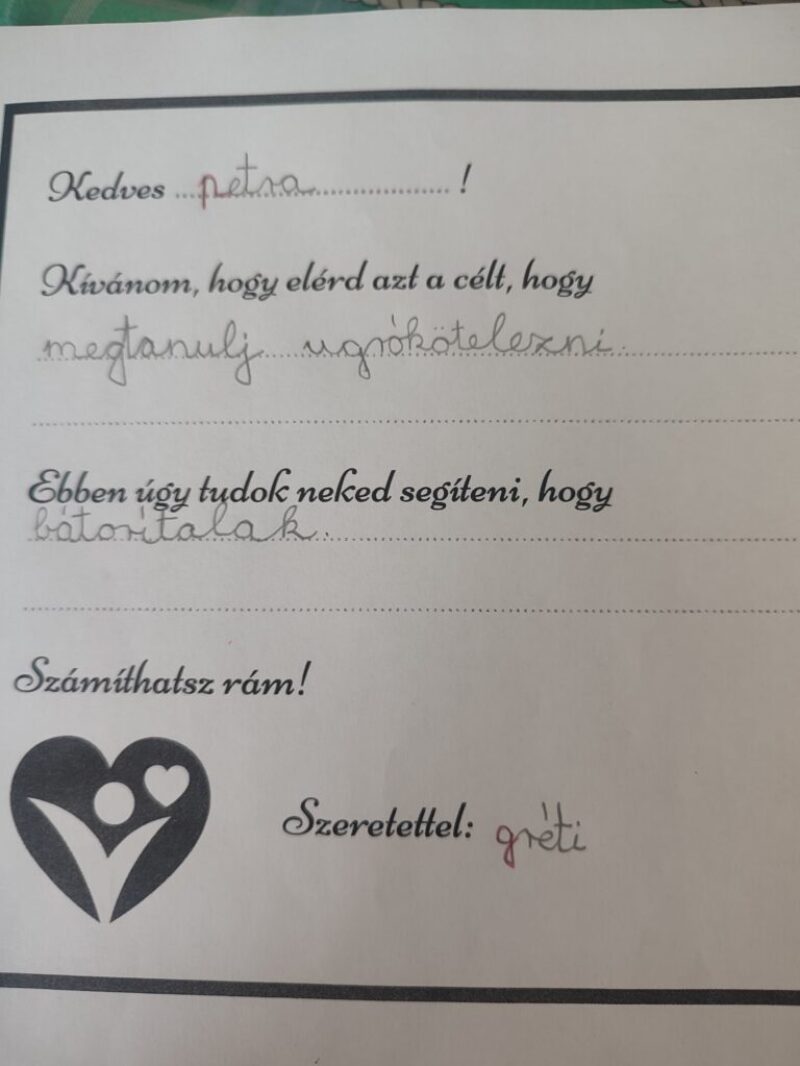 Kedves petra !
Kívánom, hogy elérd azt a célt, hogy
megtanulj ugrókötelezni.
Ebben úgy tudok neked segíteni, hogy
bátorítalak.
Számíthatsz rám!
Szeretettel: gréti